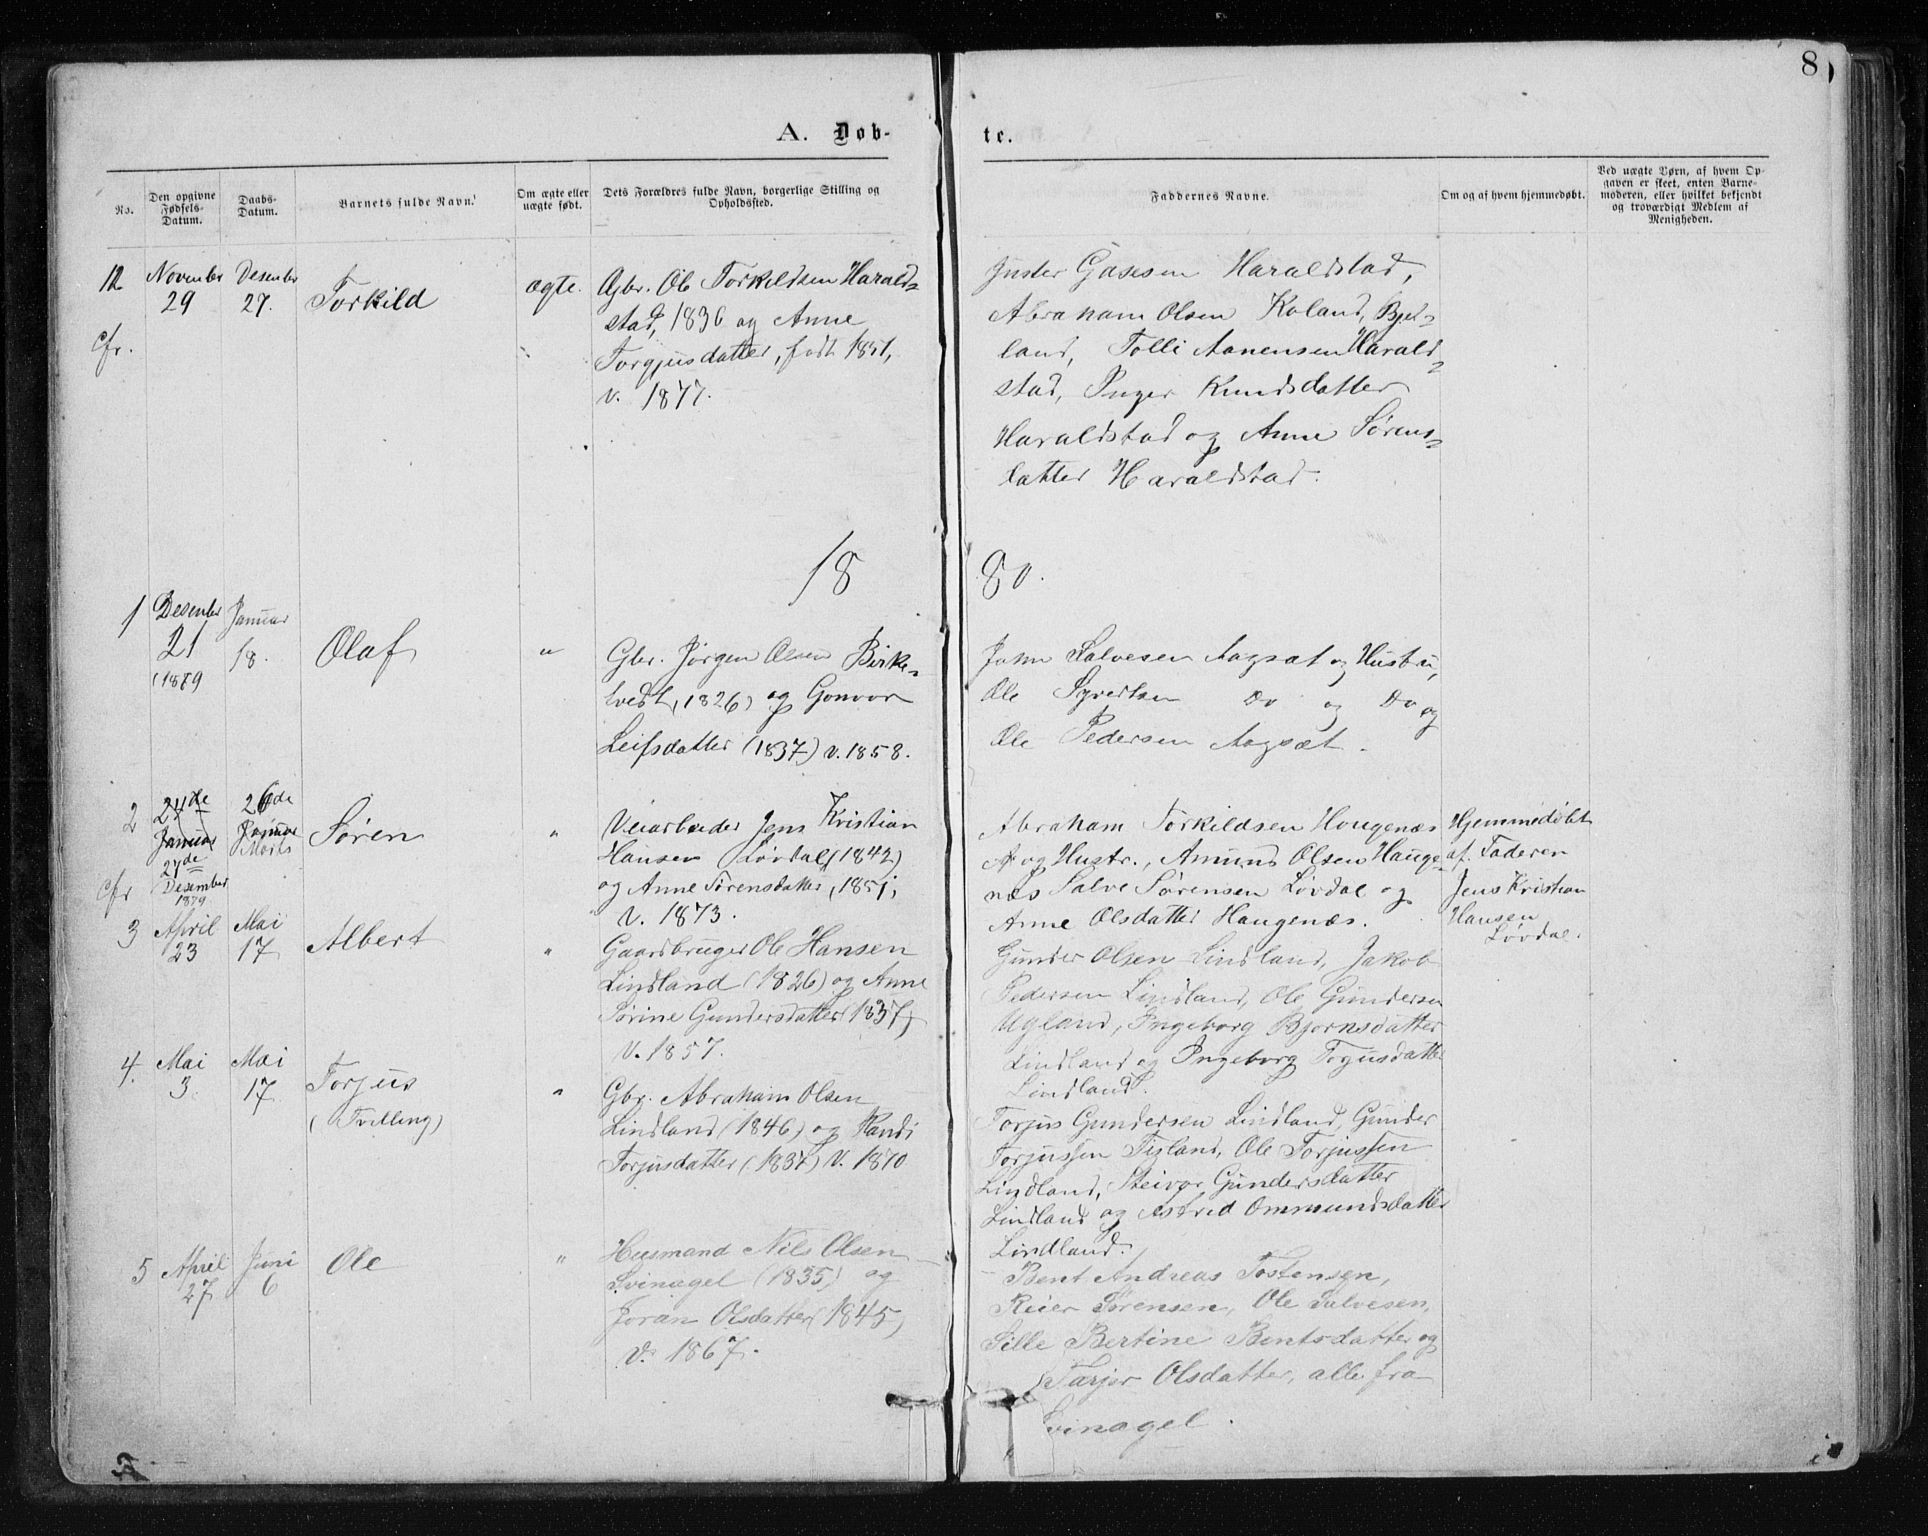 8
A. Døb-
te.
No.
Den opgivne Fødsels-Datum.
Daabs-Datum.
Barnets fulde Navn.
Om ægte eller uægte født.
Dets Forældres fulde Navn, borgerlige Stilling og Opholdssted.
Faddernes Navne.
Om og af hvem hjemmedøbt.
Ved uægte Børn, af hvem Op-
gaven er skeet, enten Barne-
moderen, eller hvilket bekjendt
og troværdigt Medlem af
Menigheden.
12
November
29
Desember
27.
Torkild
ægte.
Gbr. Ole Torkildsen Harald-
stad, 1836 og Anne
Torgjusdatter, født 1851,
v. 1877.
cfr.
Haraldstad,
Abraham Olsen Roland, Bjel-
land, Tolli Aanensen Harald-
stad, Inger Knudsdatter
Haraldstad og Anne Sørens-
datter Haraldstad.
18
80.
1
Desember
21
(1879
Januar
18.
Olaf
"
Gbr. Jørgen Olsen Birke-
tvedt, (1826) og Gonvor
Leifsdatter (1837) v. 1858.
John Salvesen Aagsæt og Hustru,
Ole Syvertsen Do og Do og
Ole Pedersen Aagsæt.
2
24de
Januar
27de
Desember
1879
26de
Januar
Marts
Søren
"
cfr
Veiarbeider Jens Kristian
Hansen Løvdal (1842)
og Anne Sørensdatter, 1851,
v. 1873.
Abraham Torkildsen Hougenæs
og Hustr., Amund Olsen Hauge-
næs Salve Sørensen Løvdal og
Anne Olsdatter Haugenæs.
Hjemmedøbt
af Faderen
Jens Kristian
Hansen
Løvdal.
3
April
23
Mai
17
Albert
"
Gaardbruger Ole Hansen
Lindland (1826) og Anne
Sørine Gundersdatter (1837)
v. 1857.
Gunder Olsen Lindland, Jakob
Pedersen Lindland, Ole Gundersen
Ugland, Ingeborg Bjørnsdatter
Lindland og Ingeborg Torjusdatter
Lindland.
4.
Mai
3
Mai
17
Torjus
(Tvilling)
"
Gbr. Abraham Olsen
Lindland (1846) og Randi
Torjusdatter (1837) v. 1870
Torjus Gundersen Lindland, Gunder
Torjussen Tisland, Ole Torjussen
Lindland, Steivor Gundersdatter
Lindland og Astrid Ommundsdatter
Lindland.
5
April
27
Juni
6
Ole
"
Husmand Nils Olsen
Svinagel (1835) og
Joran Olsdatter (1845)
v. 1867.
Bent Andreas Tostensen,
Reier Sørensen, Ole Salvesen,
Sille Bertine Bentsdatter og
Tarjer Olsdatter, alle fra
Svinagel.